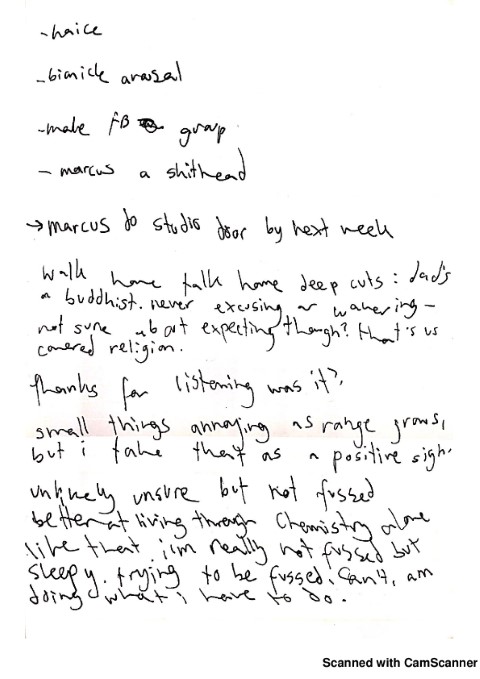 - haice
- bimick arousal
- make FB group
- marcus a shithead
→ marcus do studio door by next week
walk home talk home deep cuts: dad's
a buddhist. never excusing or wavering –
not sure about expecting though? that's us
covered religion.
thanks for listening was it?
small things annoying as range grows,
but i take that as a positive sign.
uniquely unsure but not fussed
better at living through Chemistry alone
like that. i'm really not fussed but
sleepy. trying to be fussed. can't, am
doing what i have to do.
Scanned with CamScanner